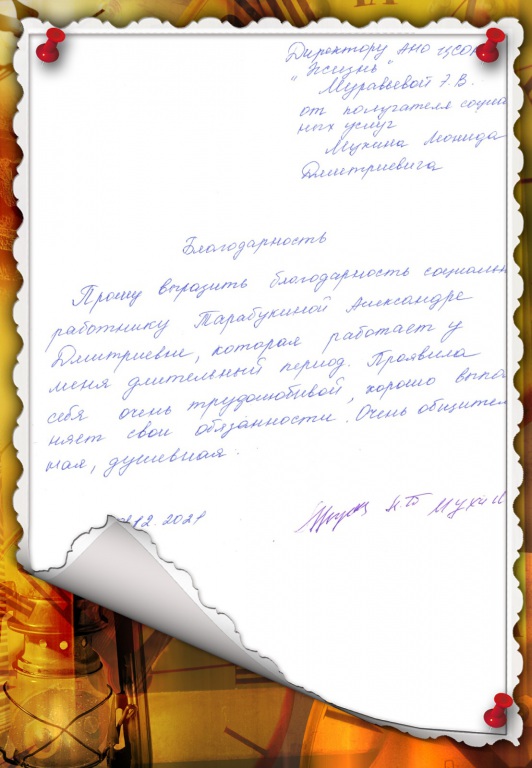 Директору АНО ЦСОН
"Жизнь"
Муравьевой Э.В.
от получателя социа
ных услуг
Мухина Леонида
Дмитриевича
Благодарность
Прошу выразить благодарность социальн
работнику Тарабукиной Александре
Дмитриевне, которая работает у
меня длительный период. Проявила
себя очень трудолюбивой, хорошо выпо
няет свои обязанности. Очень общител
ная, душевная.
12.2021
Мухин